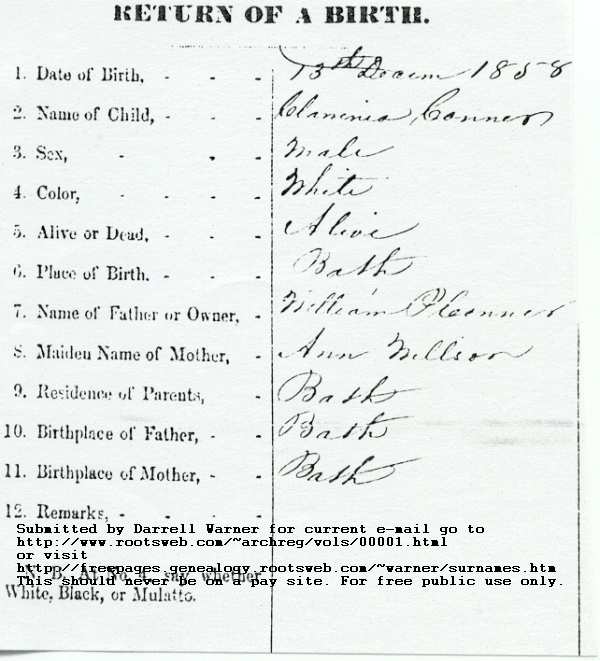 RETURN OF A BIRTH.
1. Date of Birth, - - - 13th Decem 1858
2. Name of Child, - - - Conner
3. Sex, - - - Male
4. Color, - - - - White
5. Alive or Dead, - - - Alive
6. Place of Birth. - - - Bath
7. Name of Father or Owner, - William P Conner
8. Maiden Name of Mother, - Ann Willson
9. Residence of Parents, - Bath
10. Birthplace of Father, - - Bath
11. Birthplace of Mother, - - Bath
12. Remarks, - - - -
Submitted by Darrell Warner for current e-mail go to
http://www.rootsweb.com/~archreg/vols/00001.html
or visit
http://freepages.genealogy.rootsweb.com/~warner/surnames.htm
This should never be on a pay site. For free public use only.
say, whether
White, Black, or Mulatto.